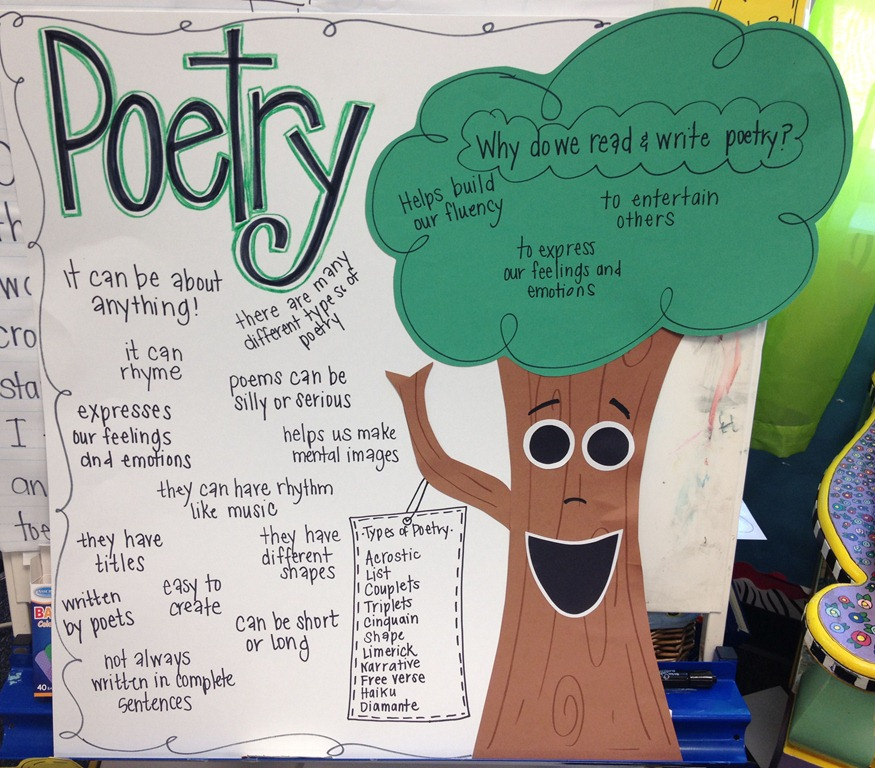 Poetry
Why do we read & write poetry?
Helps build
our fluency
to entertain
others
to express
our feelings and
emotions
it can be about
anything!
there are many
different types of
poetry
it can
rhyme
poems can be
silly or serious
expresses
our feelings
and emotions
helps us make
mental images
they can have rhythm
like music
they have
titles
they have
different
shapes
written
by poets
easy to
create
can be short
or long
not always
written in complete
sentences
Types of Poetry
Acrostic
List
Couplets
Triplets
Cinquain
Shape
Limerick
Narrative
Free verse
Haiku
Diamante
cro
sta
I
an
toe
BA
40